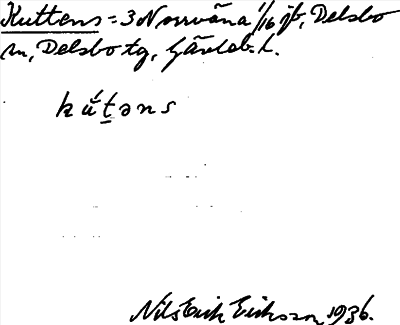 Kuttens = 3 Norrväna 1/16 jb, Delsbo
sn, Delsbo tg, Gävleb. l.
kút̠əns
Nils Erik Eriksson 1936.